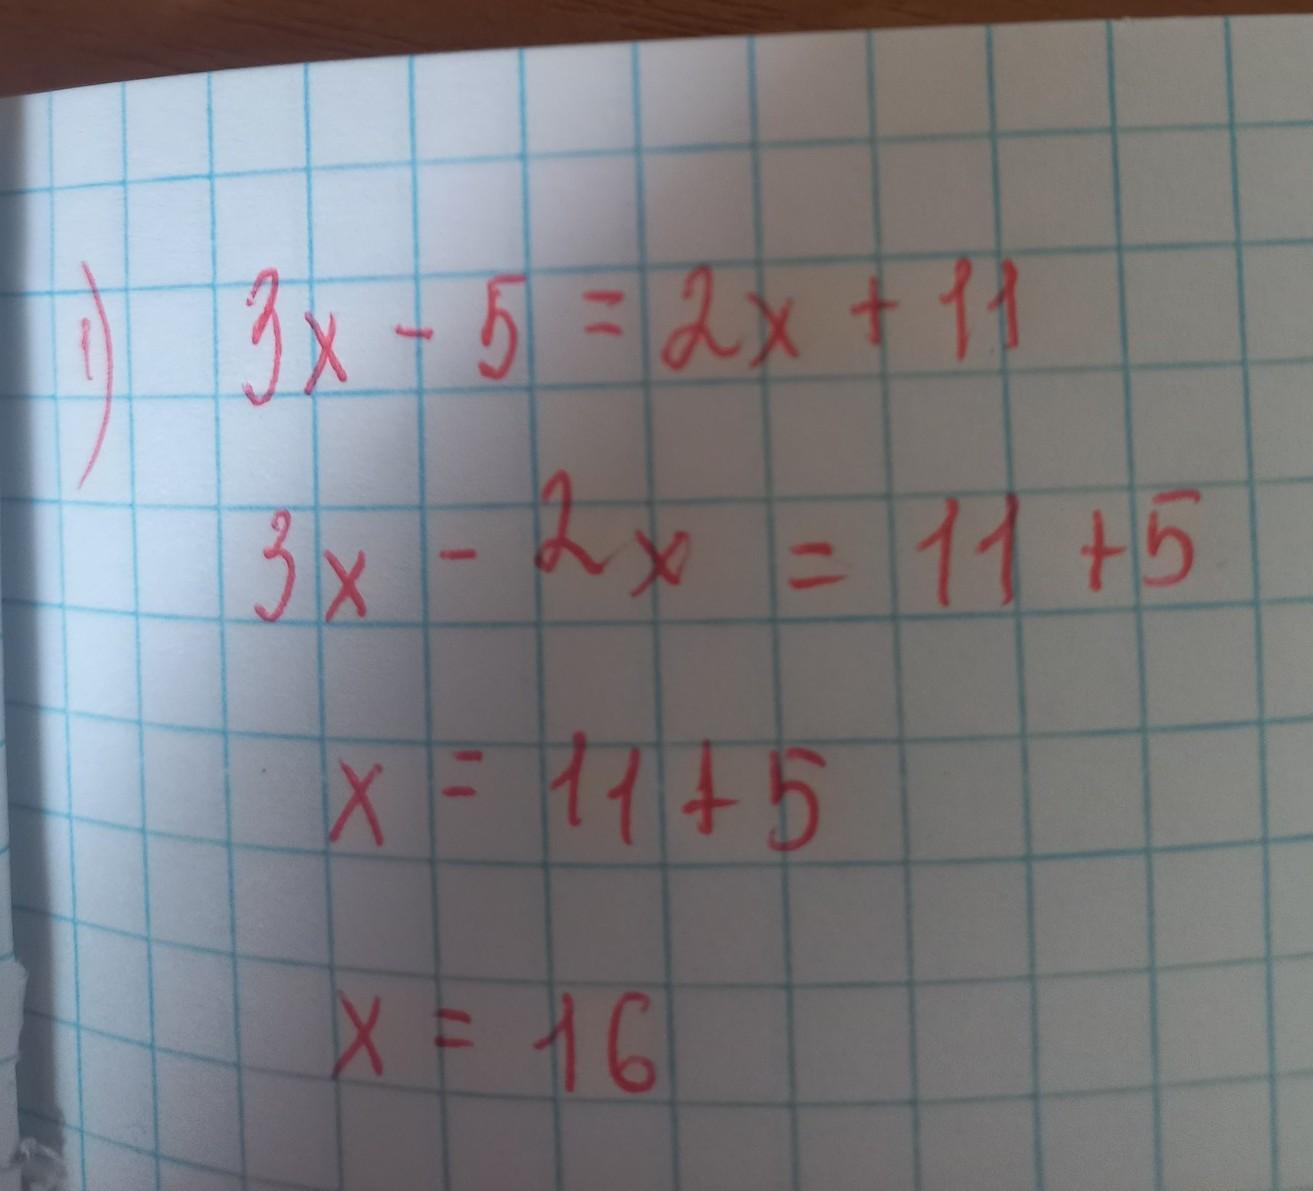 1) 3x - 5 = 2x + 11
3x - 2x = 11 + 5
x = 11 + 5
x = 16